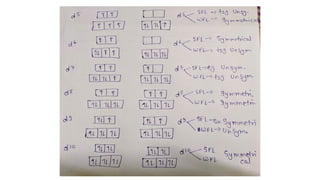 d5 SFL → t2g Unsy.
WFL → Symmetrical
d6 d6 SFL → Symmetrical
WFL → t2g Unsym
d7 SFL → eg Unsym.
WFL → t2g Unsym.
d8 d8 SFL → Symmetri
WFL → Symmetri
d9 d9 Symmetri
WFL → Unsym.
d10 d10 SFL Symmetri
WFL cal